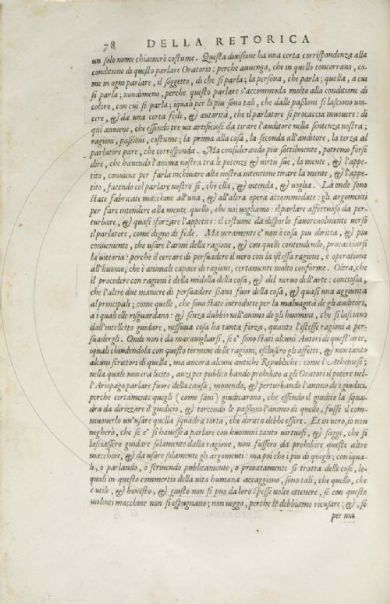 78 DELLA RETORICA
un solo nome chiamerò costume. Questa diuisione ha una certa corrispondenza alla
conditione di questo parlare Oratorio; perche auuenga, che in quello concorrano, co-
me in ogni parlare, il soggetto, di che si parla; la persona, che parla; quella, a cui
si parla; nondimeno, perche questo parlare s'accommoda molto alla conditione di
coloro, con cui si parla; iquali per lo piu sono tali, che dalle passioni si lasciono uin-
cere, & da una certa fede, & autorità, che'l parlatore si procaccia muouere: di
qui auuiene, che essendo tre uie artificiose da tirare l'auditore nella sentenza nostra;
ragioni, passioni, costume; la prima alla cosa, la seconda all'auditore, la terza al
parlatore pare, che corrisponda. Ma considerando piu sottilmente, potremo forse
dire, che hauendo l'anima nostra tra le potenze & uirtù sue, la mente, & l'appe-
tito, conuiene per farla inchinare alla nostra intentione tirare la mente, & l'appe-
tito, facendo col parlare nostro sì, che ella, & intenda, & uoglia. Là onde sono
state fabricate machine all'una, & all'altra opera accommodate: gli argomenti
per fare intendere alla mente quello, che noi uogliamo: il parlare affettuoso da per-
turbare, & quasi sforzare l'appetito: il costume da disporlo fauoreuolmente uerso
il parlatore, come degno di fede. Ma ueramente e' non è cosa piu diritta, & piu
conueniente, che usare l'armi della ragione, & con quelle contendendo, procacciarsi
la uittoria: perche il cercare di persuadere il uero con la istessa ragione, è operatione
all'huomo, che è animale capace di ragione, certamente molto conforme. Oltra, che
il procedere con ragioni è della midolla della cosa, & del neruo dell'arte: conciosia,
che l'altre due maniere di persuadere siano fuor della cosa, & quasi una aggiunta
al principale; come quelle, che sono state introdotte per la maluagità de gli auditori,
a i quali elle risguardano: & senza dubbio nell'animo degli huomini, che si lasciano
dall'intelletto guidare, nessuna cosa ha tanta forza, quanto l'istesse ragioni a per-
suadergli. Onde non è da marauigliarsi, se e' sono stati alcuni Autori di quest'arte,
iquali chiudendola con questo termine delle ragioni, esclusero gli affetti, & non tanto
alcuni scrittori di quella, ma ancora alcune antiche Republiche: come l'Atheniese;
nella quale non era lecito, anzi per publico bando prohibito a gli Oratori il potere nel-
l'Ariopago parlare fuore della causa, mouendo, & perturbando l'animo de i giudici.
perche certamente quegli (come saui) giudicarono, che essendo il giudice la squa-
dra da dirizzare il giudicio, & torcendo le passioni l'animo di quello, fusse il com-
muouerlo un'usare quella squadra torta, che diritta debbe essere. Et in uero, io non
negherei, che se e' si hauesse a parlare con huomini tanto uirtuosi, & saggi, che si
lasciassero guidare solamente dalla ragione, non fussero da prohibire queste altre
machine, & da usare solamente gli argomenti: ma poi che i piu di quegli; con iqua-
li, o parlando, o scriuendo publicamente, o priuatamente si tratta delle cose, le-
quali in questo commertio della uita humana accaggiono, sono tali, che quello, che
è utile, & honesto, & giusto non si può da loro spesse uolte ottenere, se con queste
uolenti machine non si espugnano; non ueggo, perche le debbiamo ricusare; &, se
per ma